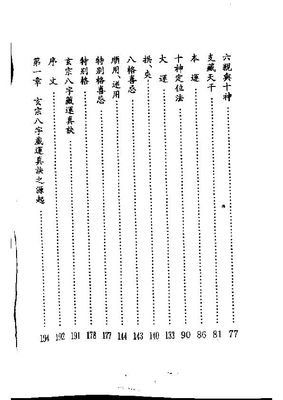 六親與十神 77
支藏天干 81
本運 86
十神定位法 90
大運 133
拱、夾 140
八格喜忌 143
順用、逆用 144
特別格喜忌 177
特別格 178
玄宗八字藏運真訣 191
序文 192
第一章 玄宗八字藏運真訣之源起 194